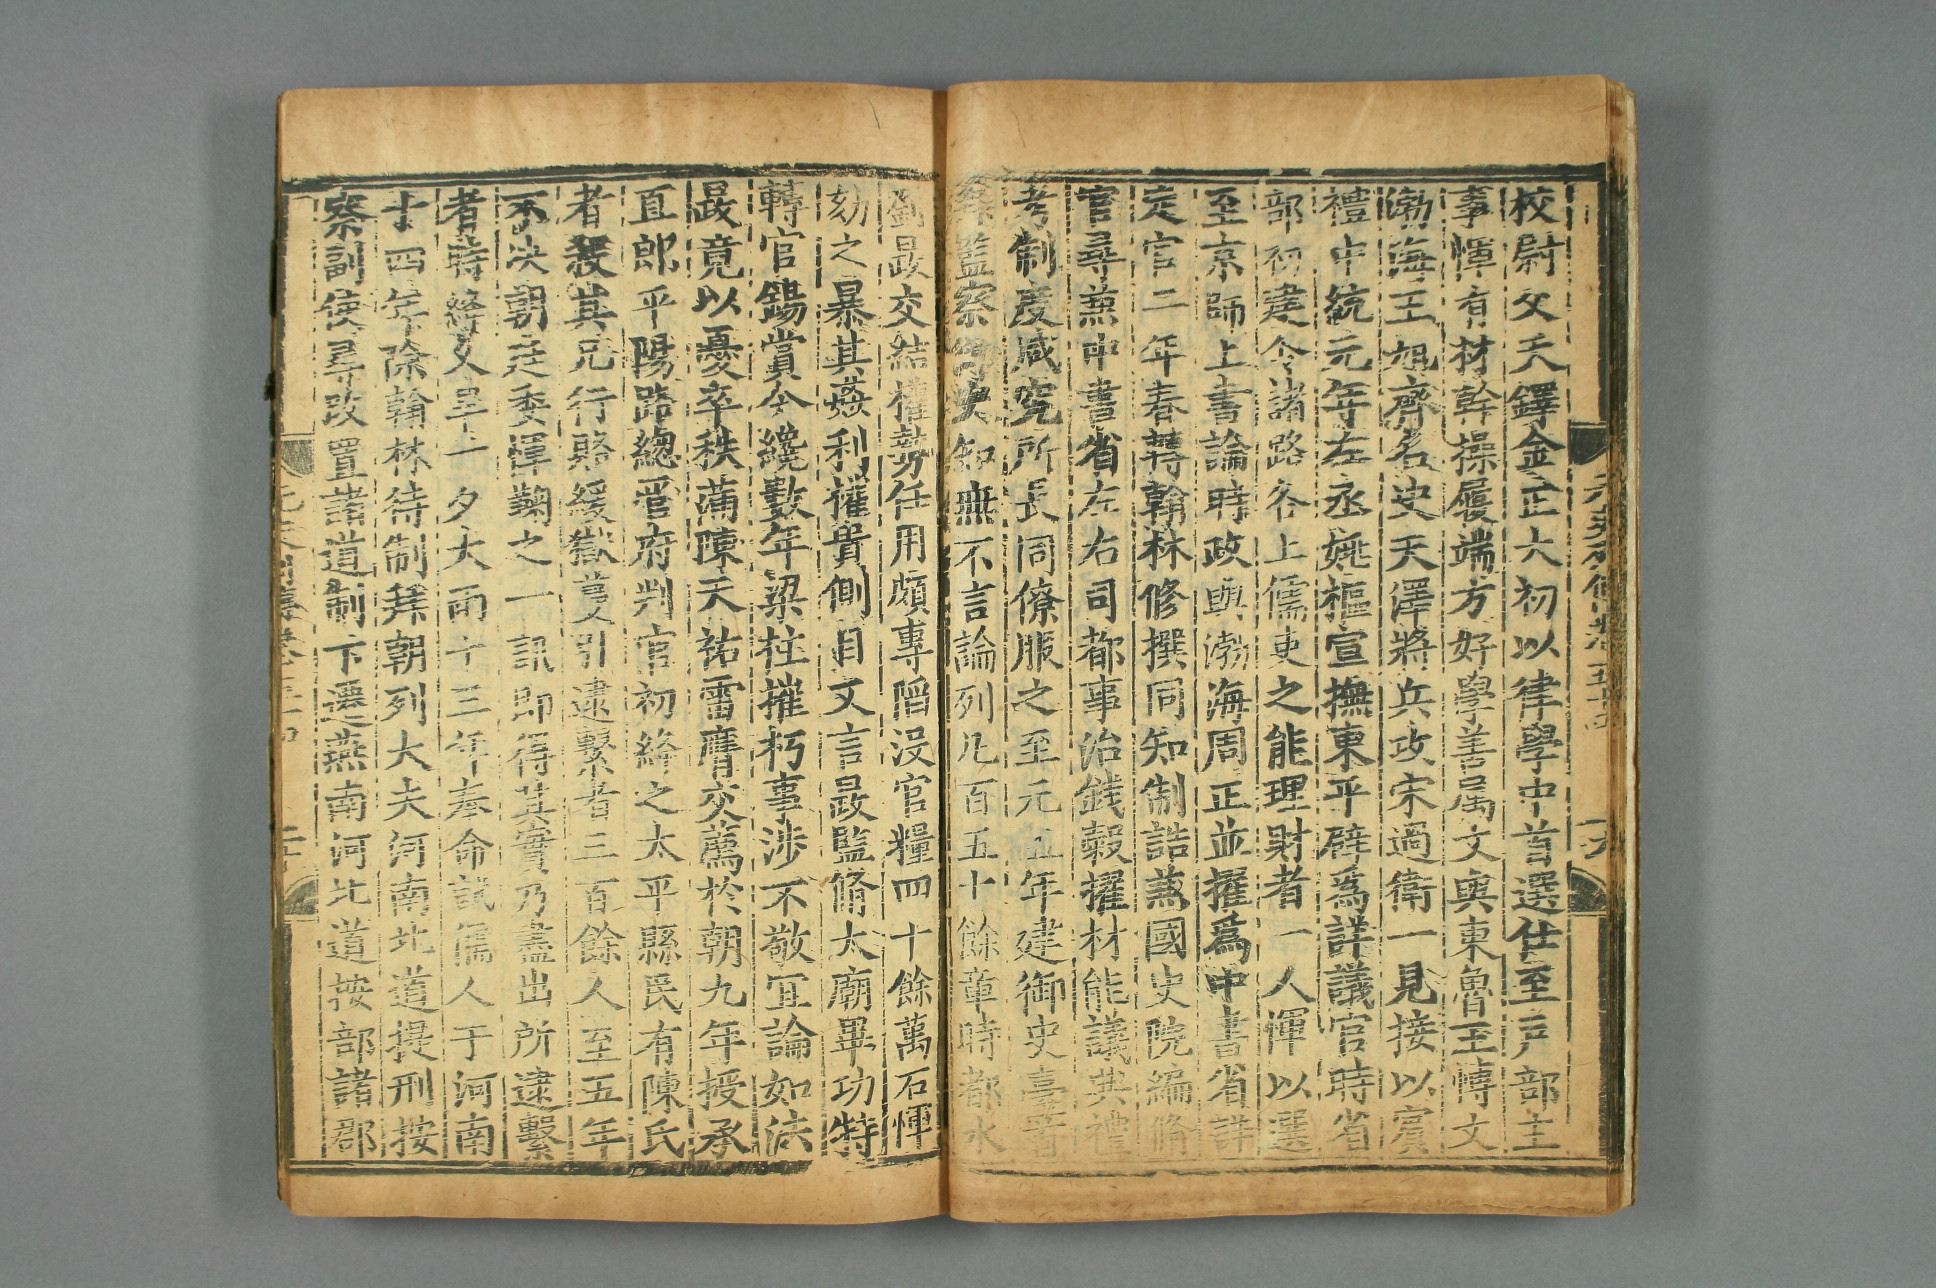 校尉父天鐸金正大初以律學中首選仕至戶部主
事惲有材幹操履端方好學善属文與東魯王博文
渤海王旭齊名史天澤將兵攻宋過衛一見接以賓
禮中統元年左丞姚樞宣撫東平辟爲詳議官時省
部初建令諸路各上儒吏之能理財者一人惲以選
至京師上書論時政與渤海周正並擢爲中書省詳
定官二年春轉翰林修撰同知制誥兼國史院編脩
官尋兼中書省左右司都事治錢穀擢材能議典禮
考制度咸究所長同僚服之至元五年建御史臺首
拜監察御史知無不言論列凡百五十餘章時都水
劉晸交結權勢任用頗專陷没官糧四十餘萬石惲
劾之暴其姦利權貴側目又言晸監脩太廟畢功特
轉官錫賞今纔數年梁柱摧朽事涉不敬宜論如法
晸竟以憂卒秩滿陳天祐雷膺交薦於朝九年授承
直郎平陽路總管府判官初絳之太平縣民有陳氏
者殺其兄行賂緩獄蔓引逮繫者三百餘人至五年
不決朝廷委惲鞫之一訊即得其實乃盡出所逮繫
者時絳久旱一夕大雨十三年奉命試儒人于河南
十四年除翰林待制拜朝列大夫河南北道提刑按
察副使尋改置諸道制下遷燕南河北道按部諸郡